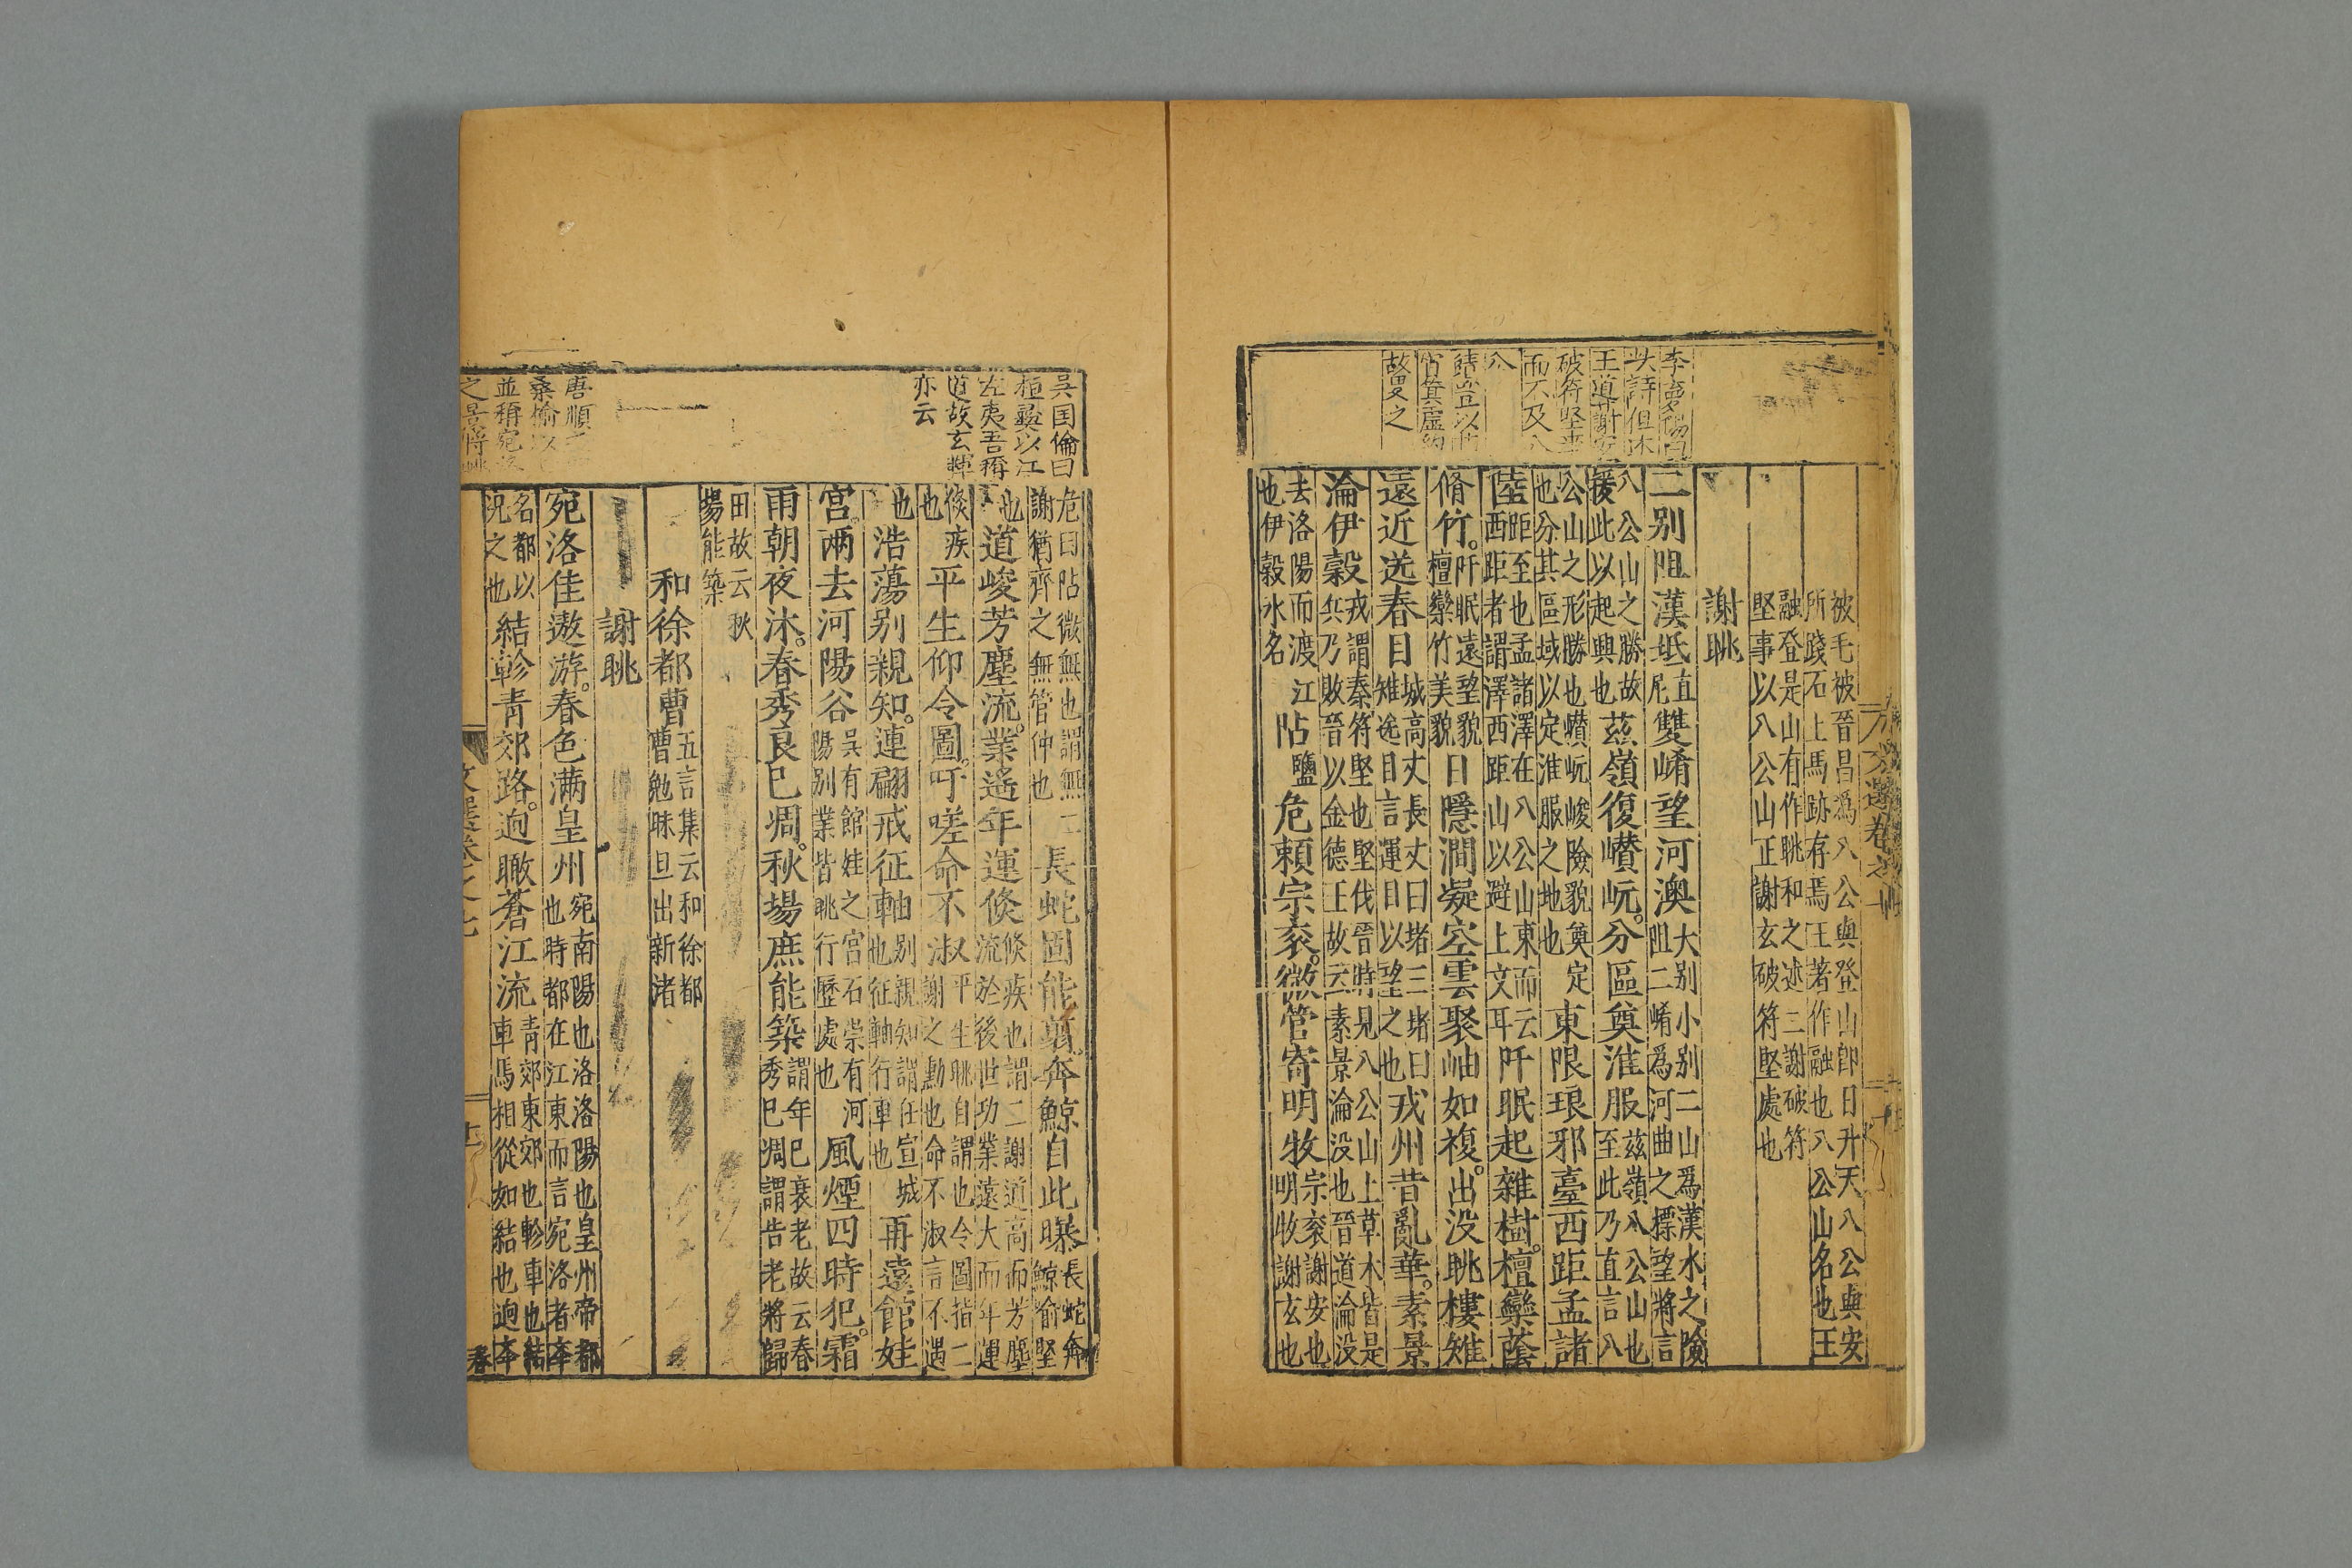 被毛被晉昌為八公與登山卽日升天八公與安
所踐石上馬跡存焉王著作融也八公山名也王
融登是山有作眺和之述二謝破符
堅事以八公山正謝玄破符堅處也
謝眺
二別阻漢坻直尼雙崤望河澳大別小別二山為漢水之險
阻二崤為河曲之標望將言
八公山之勝故
援此以起興也茲嶺復巑岏分區奠淮服茲嶺八公山也
至此乃直言八
公山之形勝也巑岏峻險貌奠定
也分其區域以定淮服之地也東限琅邪臺西距孟諸
陸距至也孟諸澤在八公山東而云
西距者謂澤西距山以避上文耳阡眠起雜樹檀欒蔭
脩竹阡眠遠望貌
檀欒竹美貌日隱澗凝空雲聚岫如複出沒眺樓雉
遠近送春目城高丈長丈曰堵三堵曰
雉送目言運目以望之也戎州昔亂華素景
淪伊穀戎謂秦符堅也堅伐晉時見八公山上草木皆是
兵乃敗晉以金德王故云素景淪沒也晉道淪沒
去洛陽而渡江
也伊穀水名阽鹽危賴宗袞微管寄明牧宗袞謝安也
明牧謝玄也
吳国倫曰
桓彝以江
左夷吾稱
道故玄暉
亦云
危曰阽微無也謂無二
謝猶齊之無管仲也長蛇固能翦奔鯨自此曝長蛇奔
鯨喻堅
也道峻芳塵流業遙年運倐倐疾也謂二謝道高而芳塵
流於後世功業遠大而年運
倐疾
也平生仰令圖吁嗟命不淑又平生眺自謂也令圖指二
謝之勳也命不淑言不遇
也浩蕩別親知連翩戒征軸別親知謂任宣城
也征軸行車也再遠館娃
宮兩去河陽谷吳有館娃之宮石崇有河
陽別業皆眺行歷處也風煙四時犯霜
雨朝夜沐春秀良已凋秋場庶能築謂年已衰老故云春
秀已凋謂告老將歸
田故云秋
場能築
和徐都曹五言集云和徐都
曹勉昧旦出新渚
謝眺
宛洛佳遨游春色滿皇州宛南陽也洛洛陽也皇州帝都
也時都在江東而言宛洛者本
名都以
況之也結軫青郊路迥瞰蒼江流青郊東郊也軫車也結
車馬相從如結也迥本